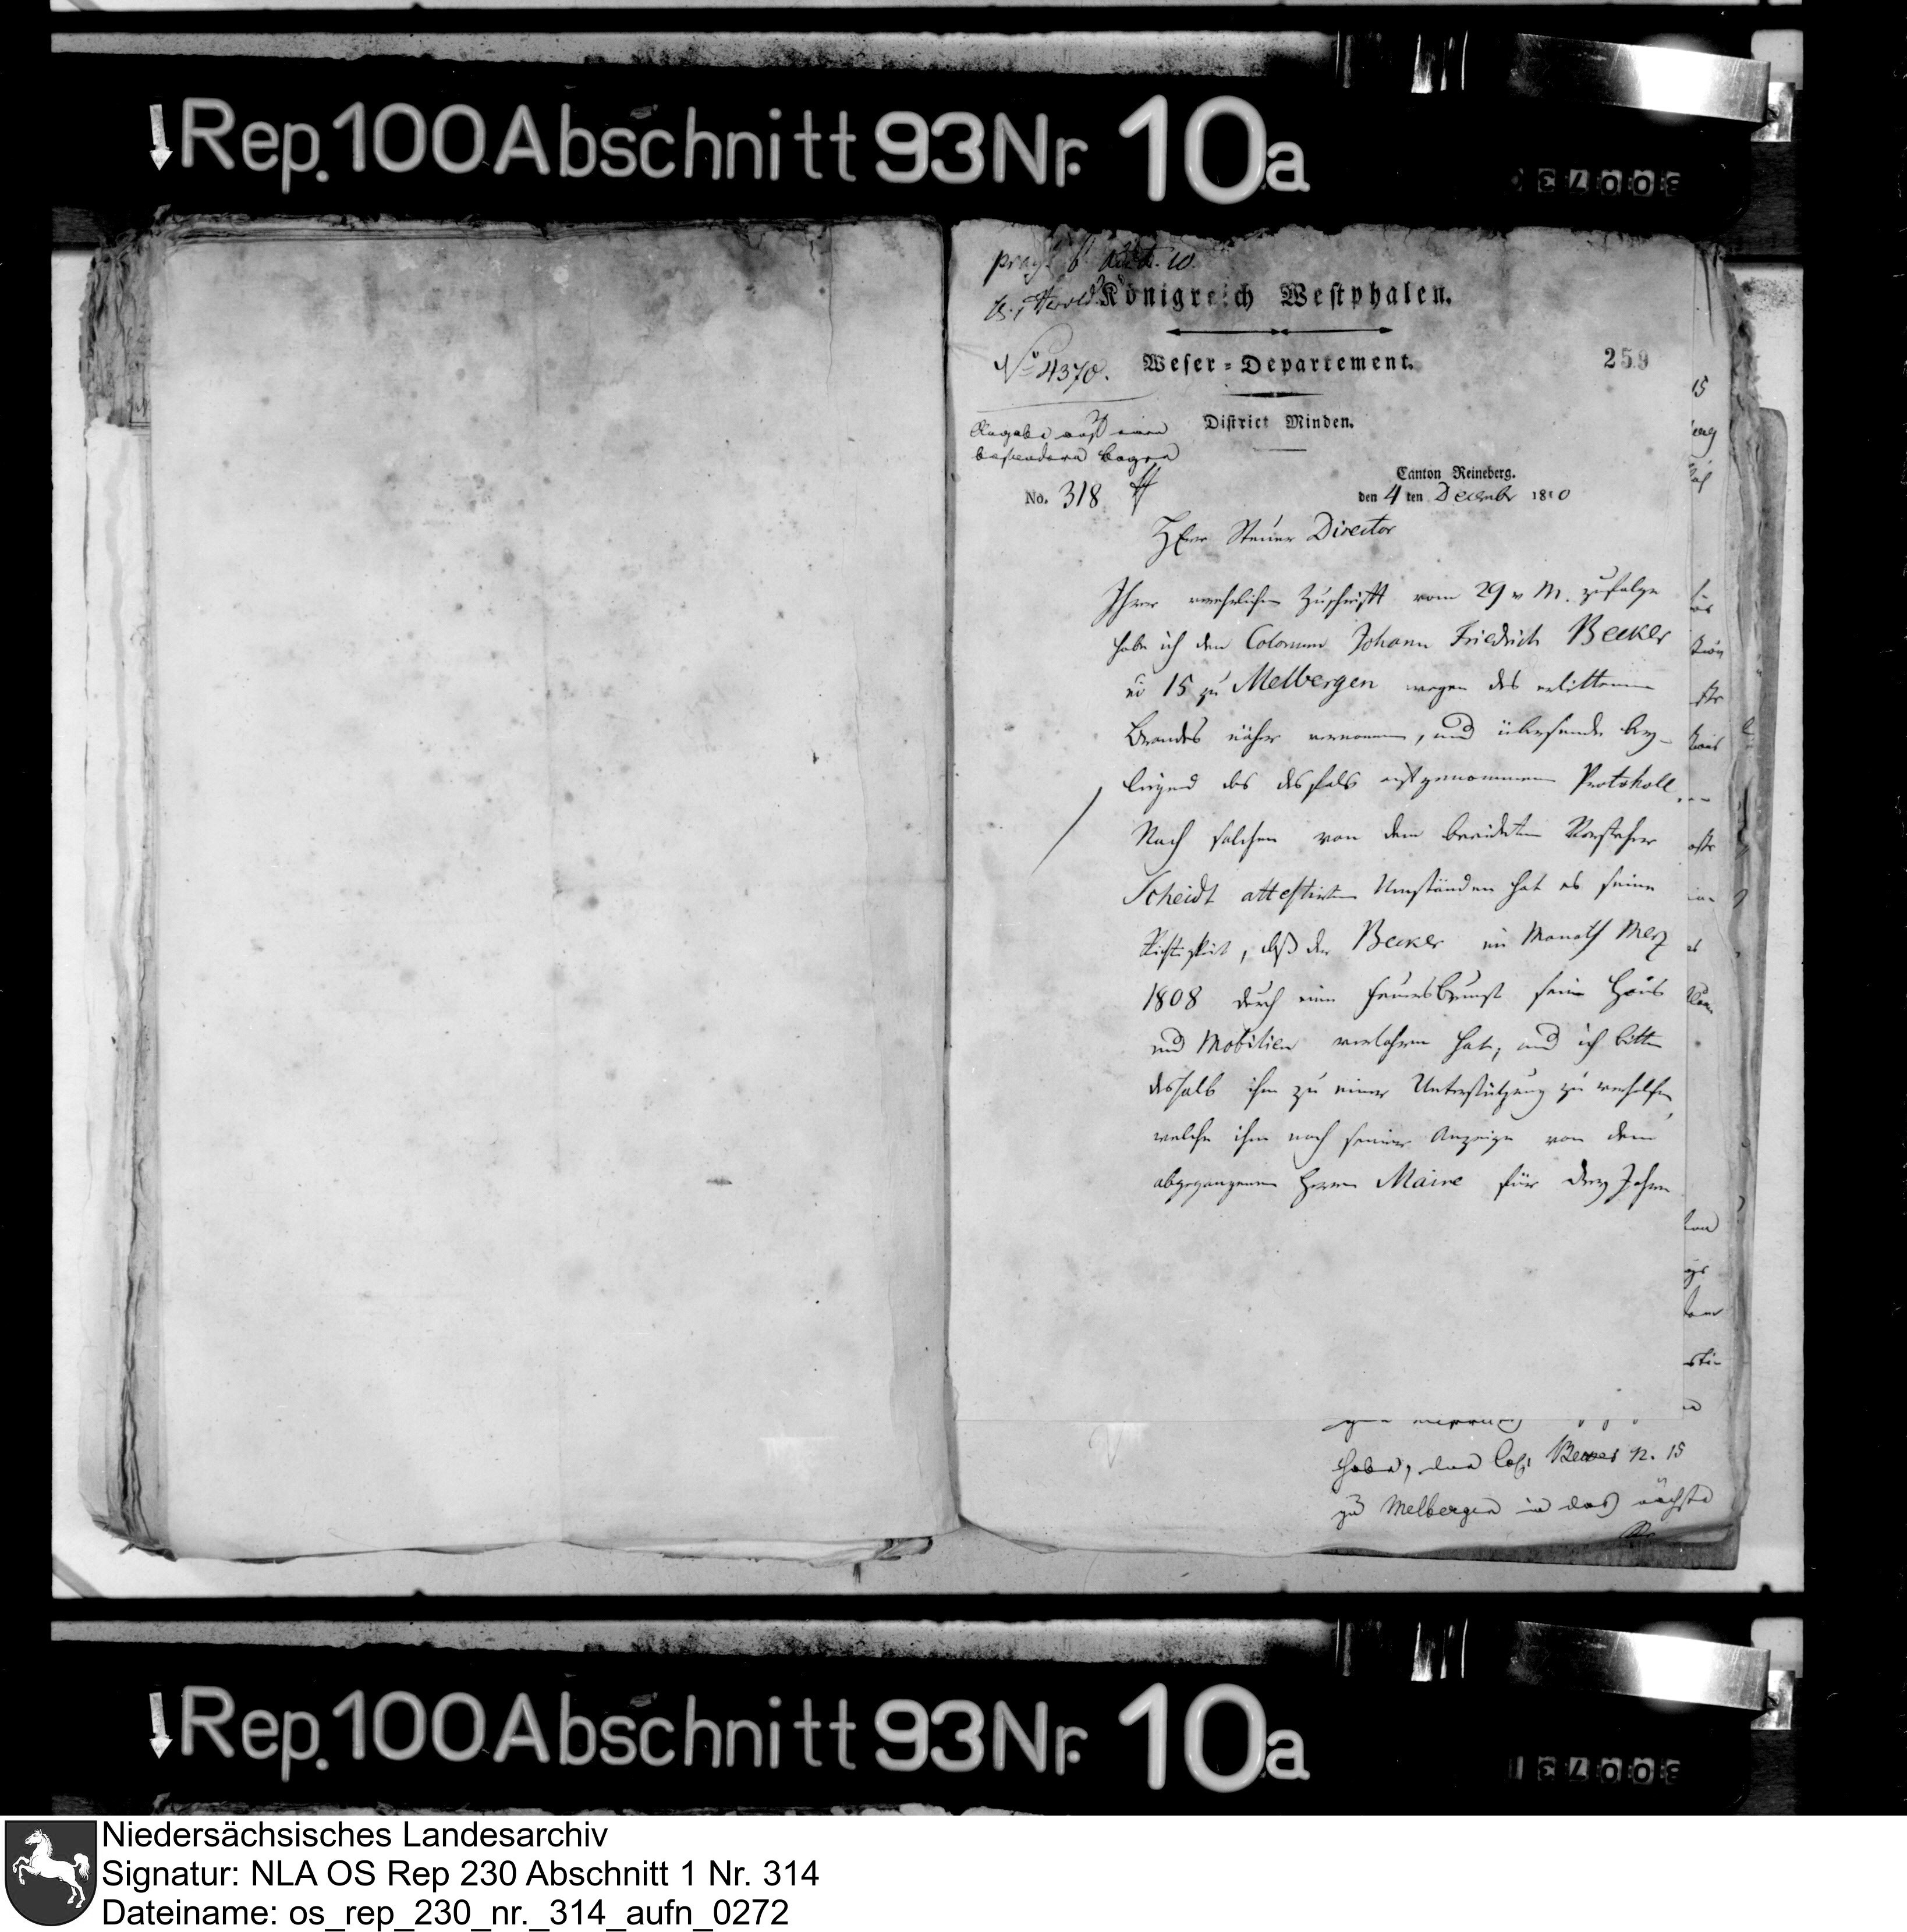 Rep. 100 Abschnitt 93 Nr. 10a
Königreich Westphalen.
No 4370.
Weser-Departement.
259
District Minden.
Canton Reineberg.
No. 318
den 4 ten December 1810
Herr Steuer Director
Ihrer verehrlichen Zuschrift vom 29 v M. zufolge
habe ich den Colonum Johann Friedrich Becker
no 15 zu Melbergen wegen des erlittenen
Brandes näher vernommen, und übersende bey-
liegend das desfals aufgenommene Protokoll.
Nach solchen von dem beeideten Vorsteher
Scheidt attestirten Umständen hat es seine
Richtigkeit, daß der Becker im Monath Merz
1808 durch eine Feuersbrunst sein Haus
und Mobilien verlohren hat, und ich bitte
deshalb ihm zu einer Unterstützung zu verhelfen,
welche ihm nach seiner Anzeige von dem
abgegangenen Herrn Maire für drey Jahre
habe, den Becker n. 15
zu Melbergen in das nächste
Rep. 100 Abschnitt 93 Nr. 10a
Niedersächsisches Landesarchiv
Signatur: NLA OS Rep 230 Abschnitt 1 Nr. 314
Dateiname: os_rep_230_nr._314_aufn_0272